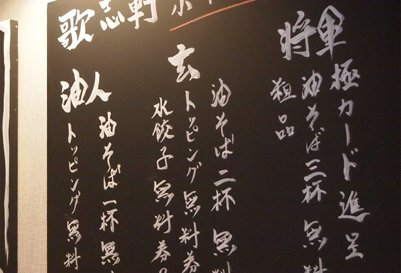 歌志軒
将軍
極カード進呈
油そば三杯無料
粗品
玄
油そば二杯無料
トッピング無料券
水餃子無料券
油人
油そば一杯無
トッピング無料